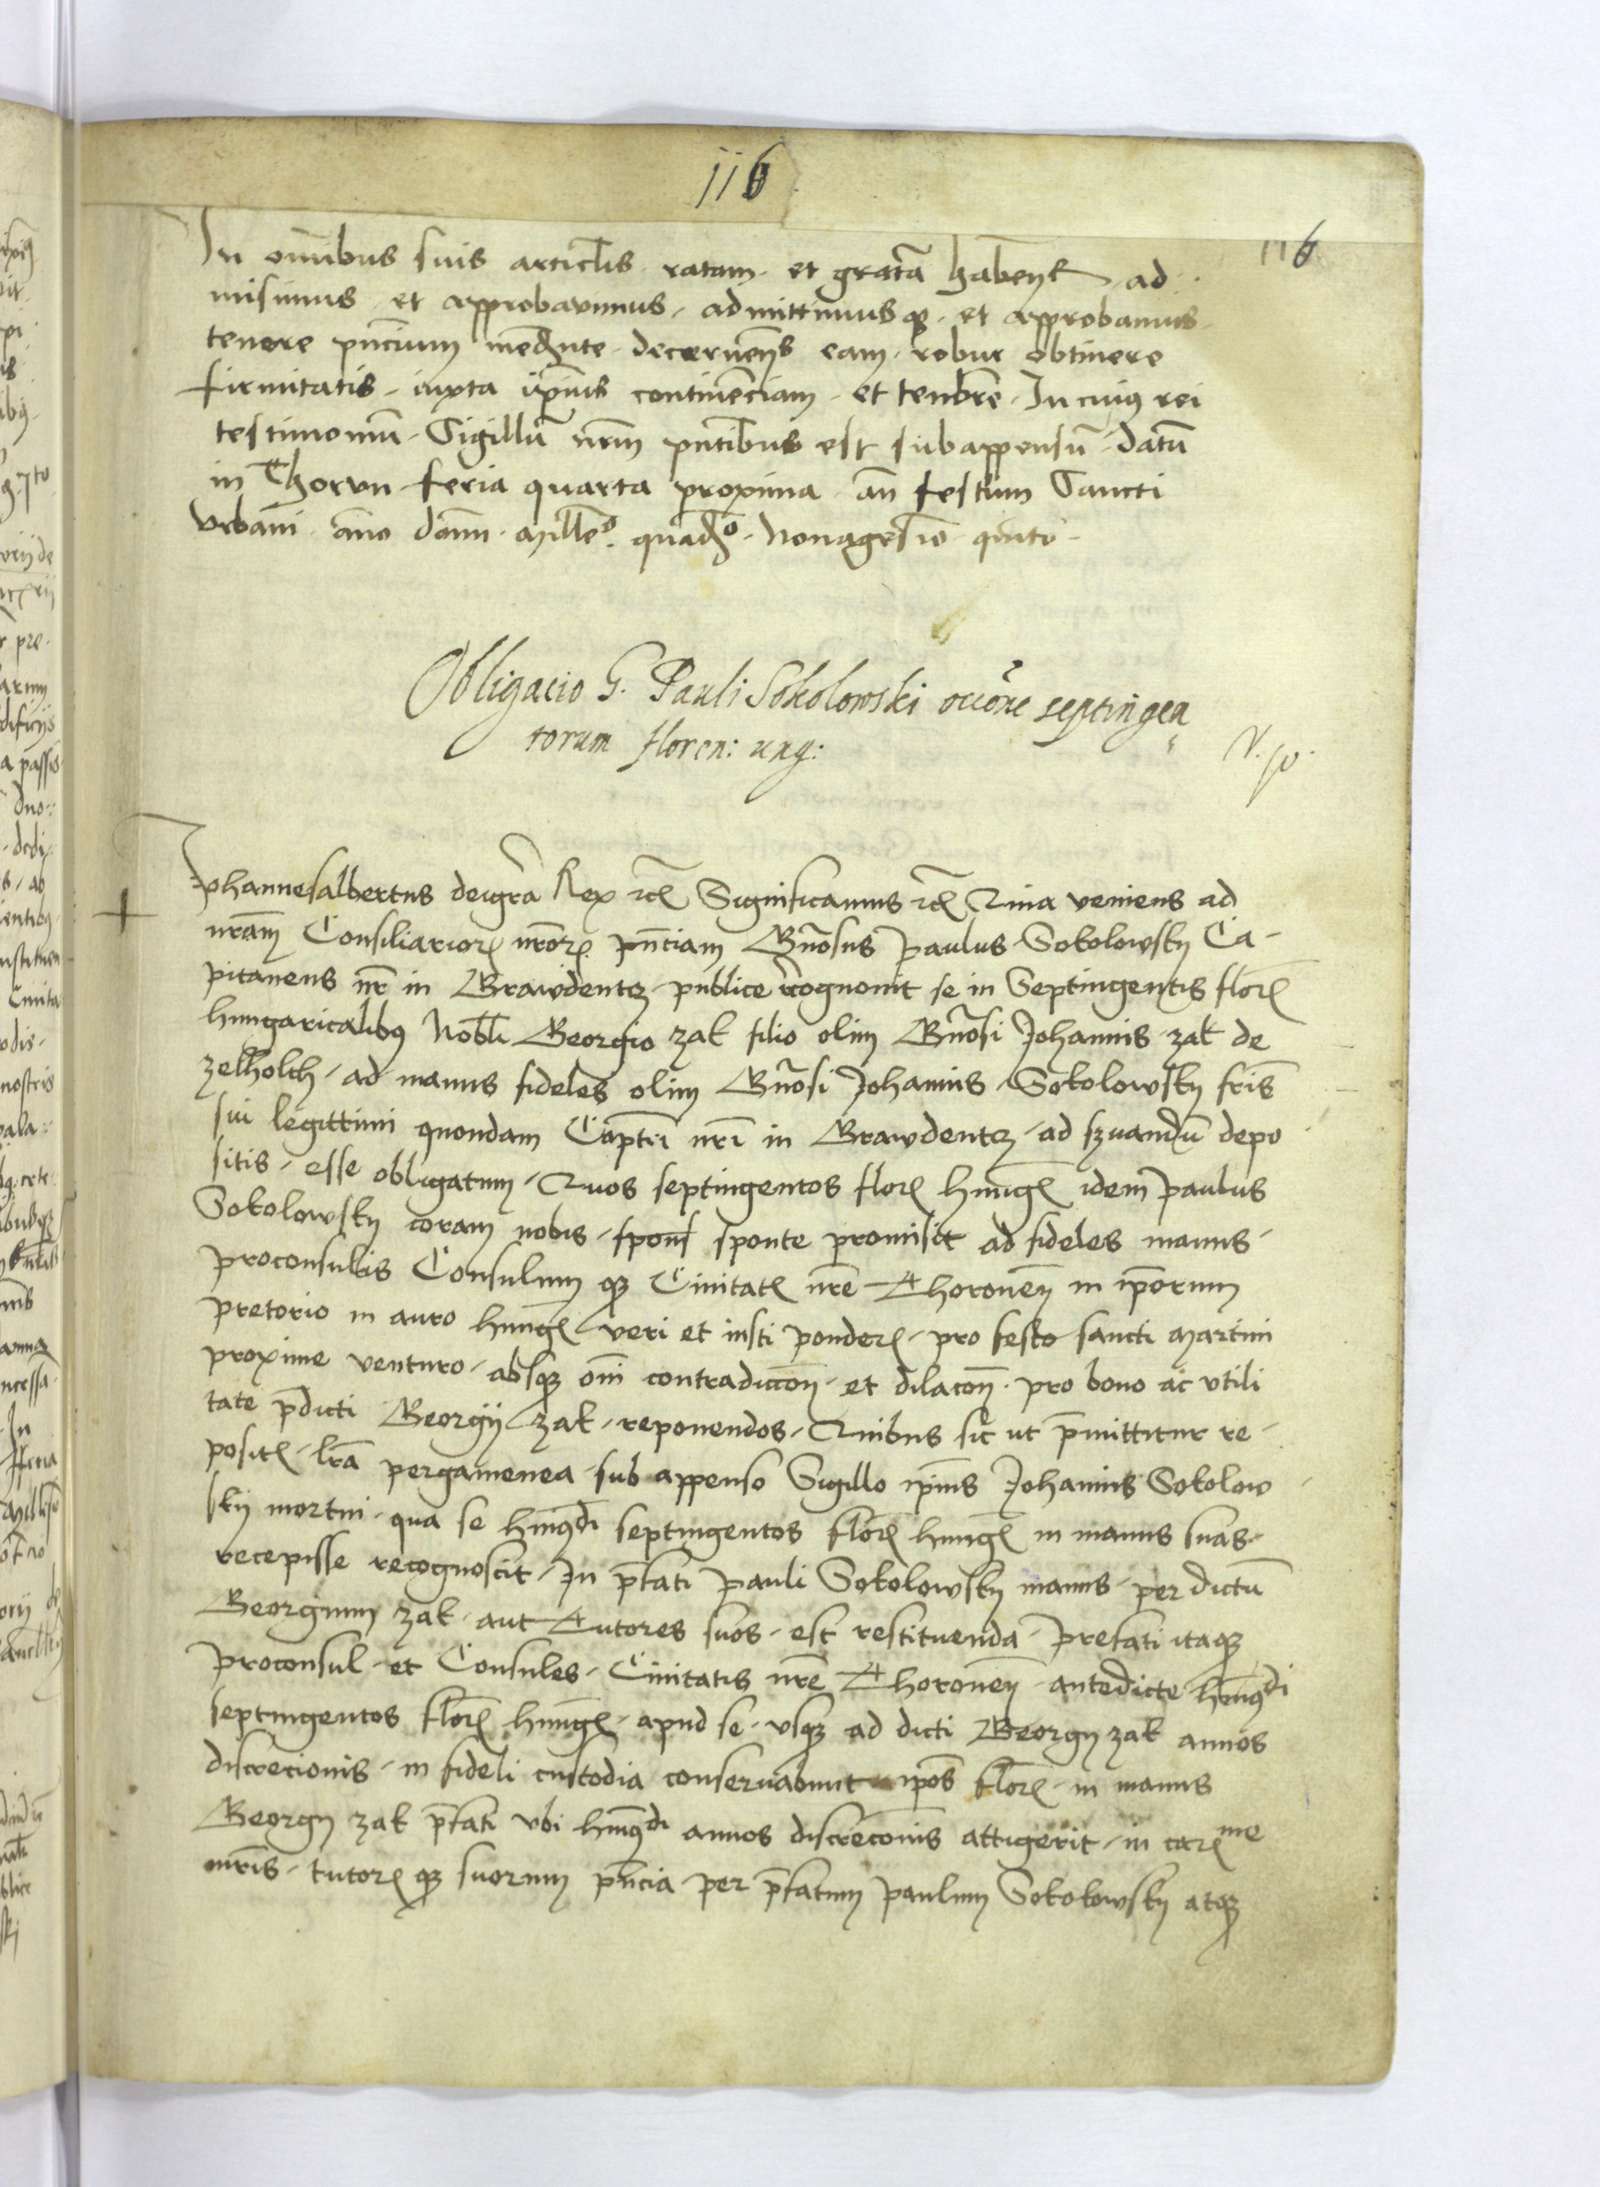 116
116
In om̄ibus suis articl̄is ratam et gratā habentes ad
misimus et approbavimus, admittimusqȝ et approbamus
tenore pn̄cium med̄nte decernen̄s eam robur obtinere
firmitatis, iuxta ip̄ius continēciam et tenorē. In cuius rei
testimoniū Sigillū nr̄m pn̄tibus est subappensū, datū
in Thorvn feria quarta proxima an̄ festum Sancti
Vrbani an̄o dom̄ Mill̄eo quadro Nonagesīo quīto
Obligacio G. Pauli Sokolowski occōne septingen
torum floren: ung:
Johannesalbertus deigrā Rex etc̄ Significamus etc̄ Quia veniens ad
nrām Consiliarior̄ nr̄or̄ pn̄ciam Gn̄osus Paulus Sokolowsky Ca-
pitaneus nr̄ in Grawdentz publice recognouit se in Septingentis flor̄
hungaricalibus Nobl̄i Georgio Zak filio olim Gn̄osi Johannis Zak de
, ad manus fideles olim Gn̄osi Johannis Sokolowsky fr̄is
sui legittimi quondam Capt̄i nr̄i in Grawdentz ad s̄uandū depo
sitis, esse obligatum, Quos septingentos flor̄ hunḡ idem Paulus
Sokolowsky coram nobis, spons sponte promisit ad fideles manus
proconsulis Consulum qȝ Ciuitat̄ nr̄e Thoronen̄ in ip̄orum
pretorio in auro hunḡ veri et iusti ponder̄, pro festo sancti Martini
proxime venturo, absqȝ om̄i contradiccōn et dilacōn pro bono ac vtili
tate p̄dicti Georgij Zak, reponendos, Quibus sic ut p̄mittitur re-
posit̄, lr̄a pergamenea sub appenso Sigillo ip̄ius Johannis Sokolow
sky mortui, qua se hmōdi septingentos flor̄ hunḡ in manus suas
recepisse recognoscit, In p̄fati Pauli Sokolowsky manus, per dictū
Georgium Zak, aut Tutores suos, est restituenda, Prefati itaqȝ
Proconsul et Consules Ciuitatis nr̄e Thoronen̄ antedicte hmōdi
septingentos flor̄ hunḡ, apud se, vsqȝ ad dicti Georgij Zak annos
discrecionis, in fideli custodia conseruabunt ip̄os flor̄, in manus
Georgij Zak p̄fati vbi hmōdi annos discrecōnis attigerit, in
mr̄is, tutor̄ qȝ suorum pn̄cia per p̄fatum Paulum Sokolowsky atqȝ